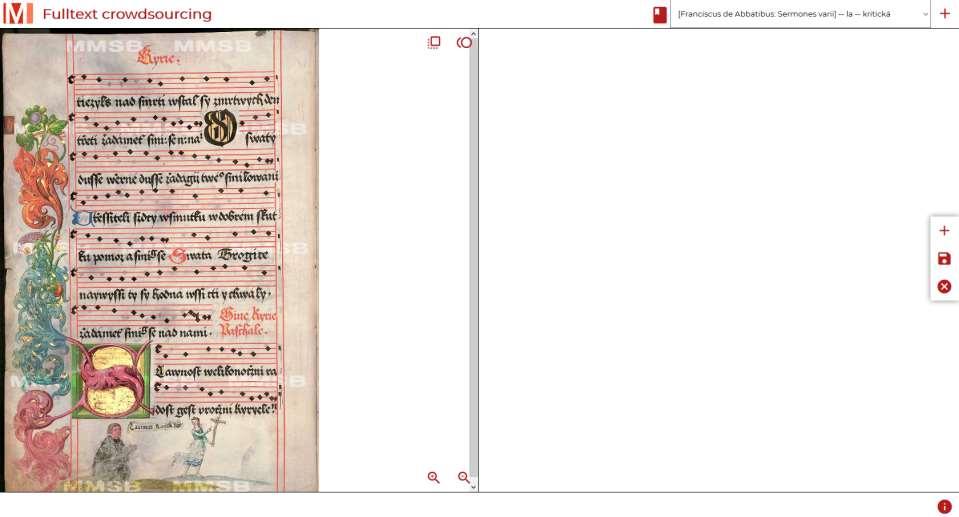 Fulltext crowdsourcing
[Franciscus de Abbatibus: Sermones varii] -- la -- kritická
MMSB MMSB
Kyrie:
tiezyls nad smrti wstal sy zmrtwych den
třeti žadamet smi: se n: na O swaty
dusse werne dusse žadagij twe° smilowani
Utěssiteli sidty wsmutku wdobrem skut
ku pomoz a smi se Swata Trogice
naywyssi ty sy hodna wssi cti y chwaly.
žadamet smi se nad nami. Gine Kyrie
Paschale.
Slawnost welikonočni ra
dost gest wročni kyryele
MMSB MMSB